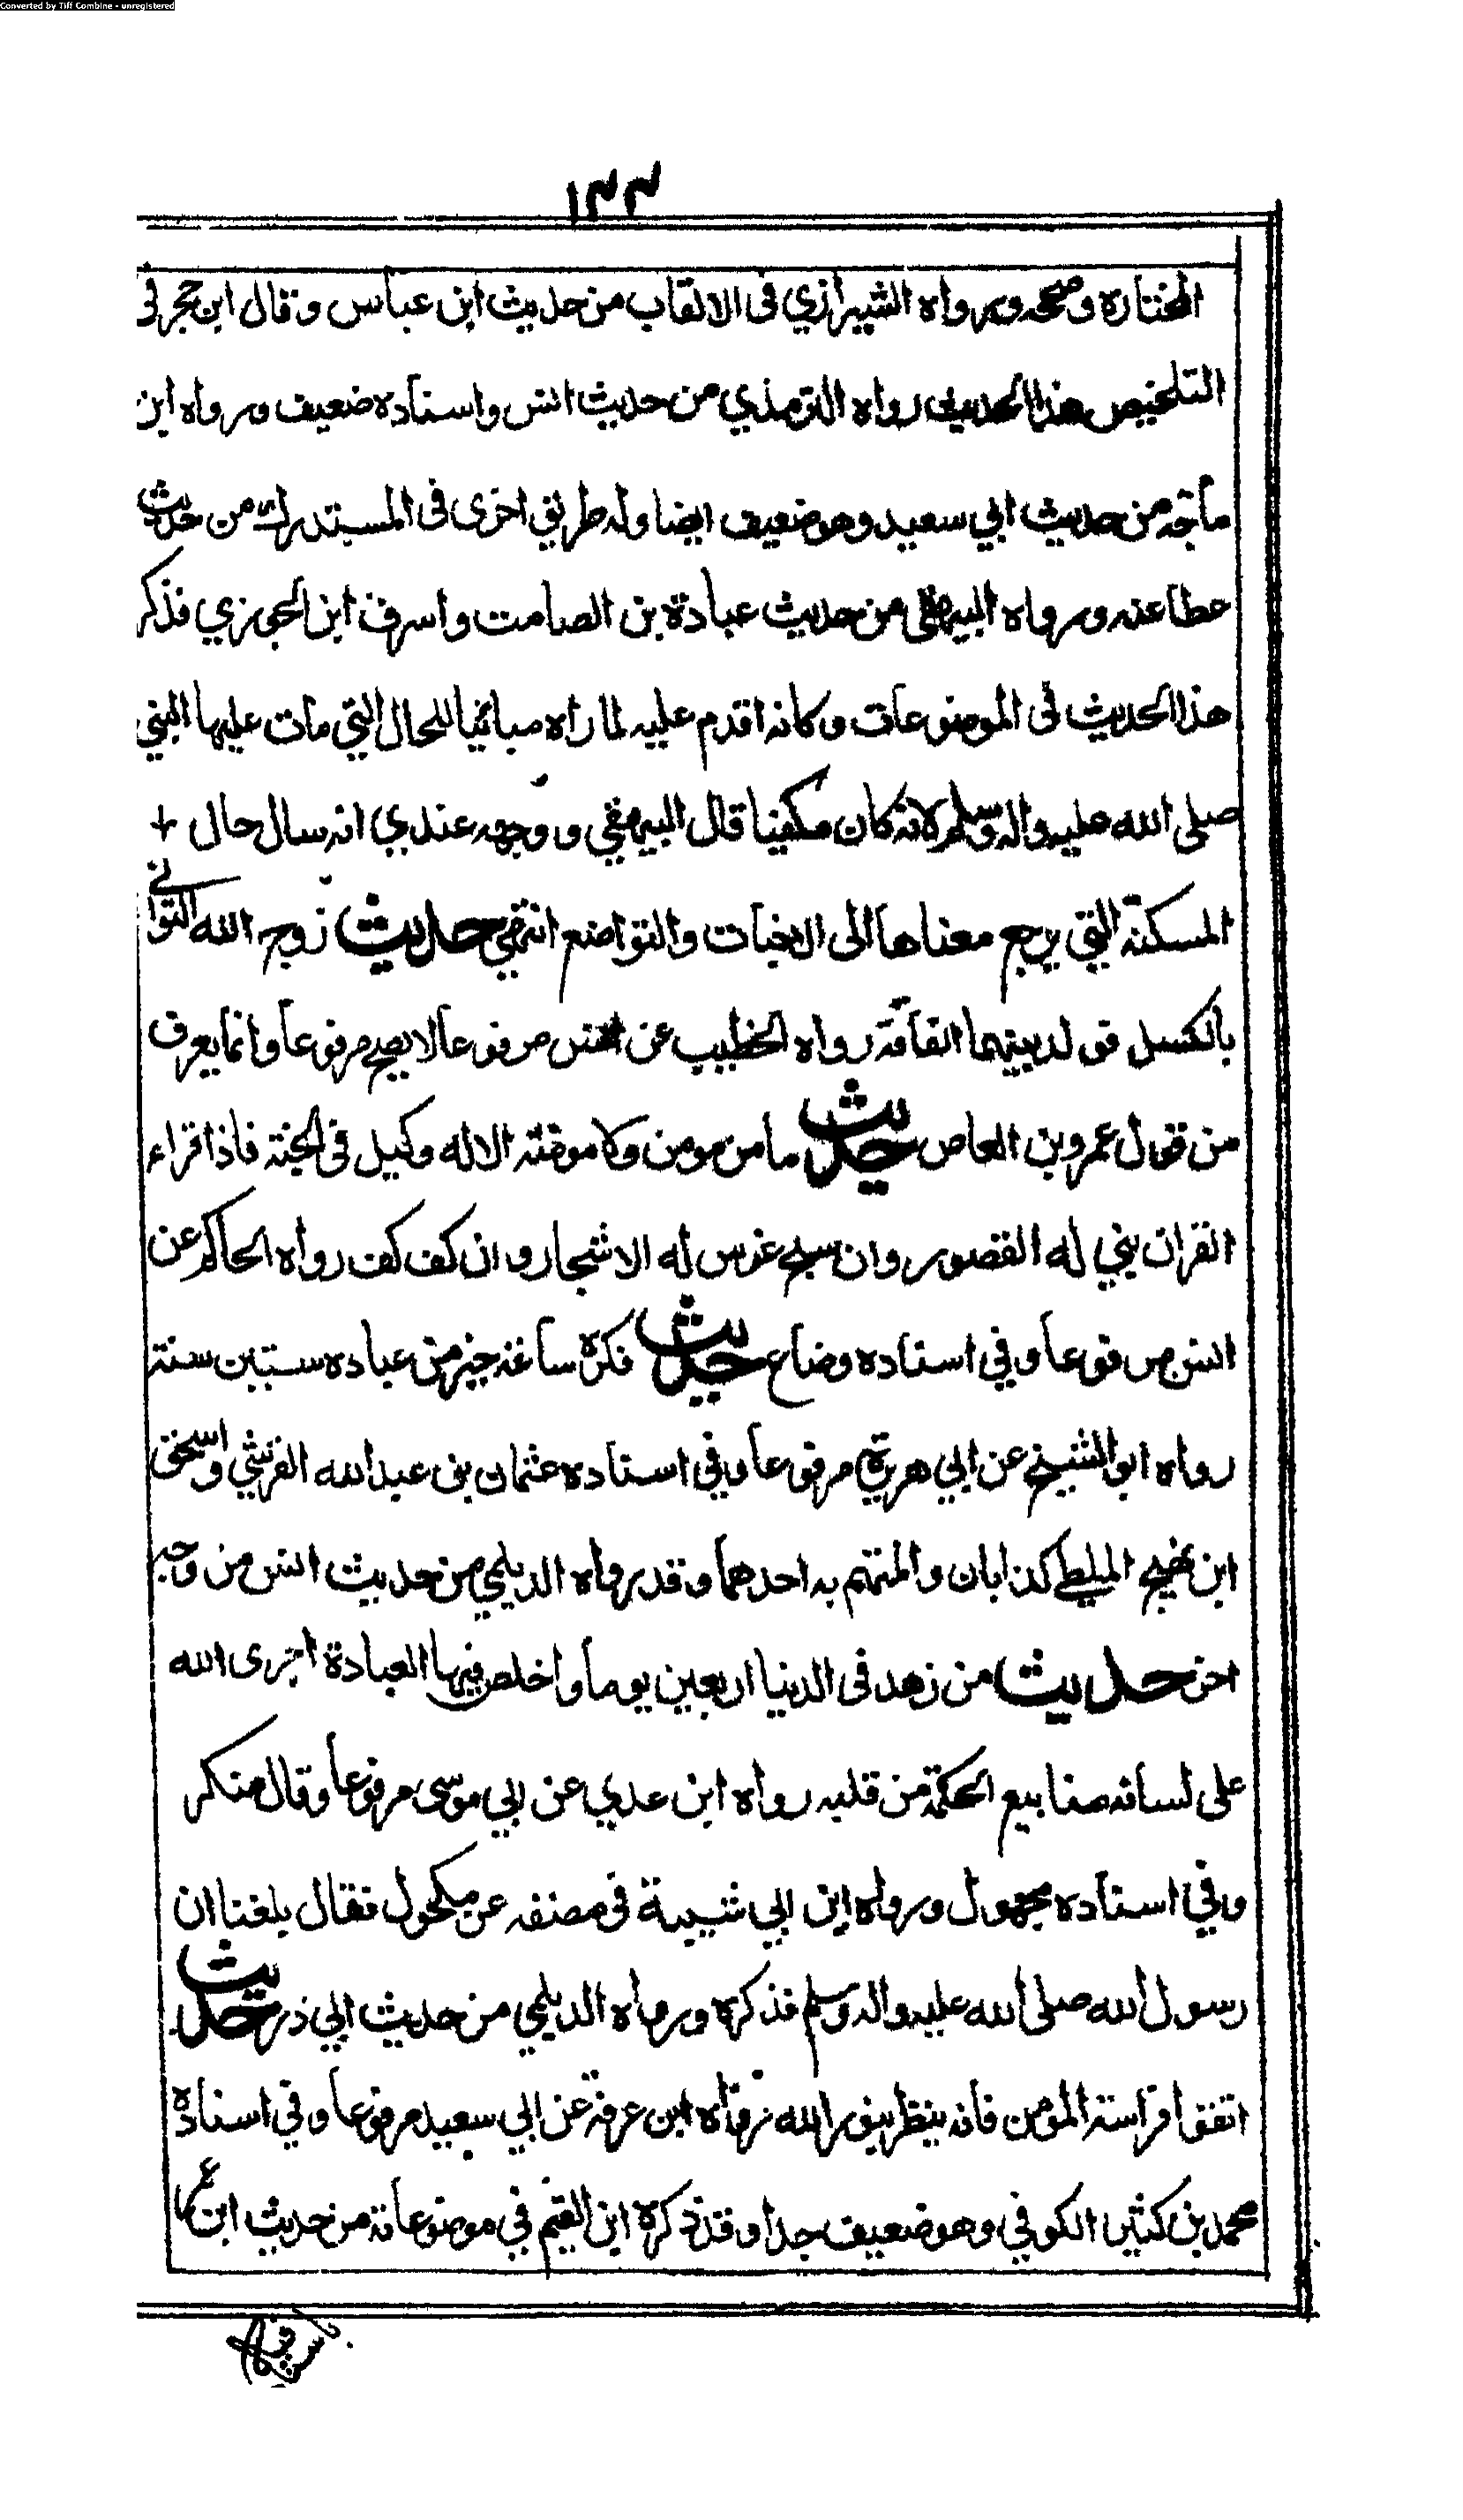 Converted by Tiff Combine - unregistered
١٣٣
المختارة وصححه ورواه الشيرازي فى الالقاب من حديث ابن عباس وقال ابن حجر فى
التلخيص هذا الحديث رواه الترمذي من حديث انس واسناده ضعيف ورواه ابن
ماجه من حديث ابي سعيد وهو ضعيف ايضا وله طريق اخرى فى المستدرك من حديث
عطا عنه ورواه البيهقي من حديث عبادة بن الصامت واسرف ابن الجوزي فذكر
هذا الحديث فى الموضوعات وكانه اقدم عليه لما راه مباينا للحال التي مات عليها النبي
صلى الله عليه واله وسلم لانه كان مكفيا قال البيهقي ووجهه عندي انه سال حال
المسكنة التي يرجع معناها الى الاخبات والتواضع انتهى حديث زوج الله التواني
بالكسل فولد بينهما الفاقة رواه الخطيب عن انس مرفوعا لا يصح مرفوعا وانما يعرف
من قول عمرو بن العاص حديث ما من مومن ولا مومنة الا له وكيل فى الجنة فاذا قراء
القران بنى له القصور وان سبح غرس له الاشجار وان كف كف رواه الحاكم عن
انس مرفوعا وفي اسناده وضاع حديث فكرة ساعة خير من عباده ستين سنة
رواه ابو الشيخ عن ابي هريرة مرفوعا وفي اسناده عثمان بن عبد الله القرشي واسحق
ابن نجيح الملطي كذابان والمتهم به احدهما وقد رواه الديلمي من حديث انس من وجه
اخر حديث من زهد فى الدنيا اربعين يوما واخلص فيها العبادة اجرى الله
على لسانه منابيع الحكمة من قلبه رواه ابن عدي عن ابي موسى مرفوعا وقال منكر
وفي اسناده مجهول ورواه ابن ابي شيبة فى مصنفه عن مكحول فقال بلغنا ان
رسول الله صلى الله عليه واله وسلم فذكره ورواه الديلمي من حديث ابي ذر حديث
اتقوا فراسة المؤمن فانه ينظر بنور الله رواه ابن عرفة عن ابي سعيد مرفوعا وفي اسناده
محمد بن كثير الكوفي وهو ضعيف جدا وقد ذكره ابن القيم في موضوعاته من حديث ابن عمر